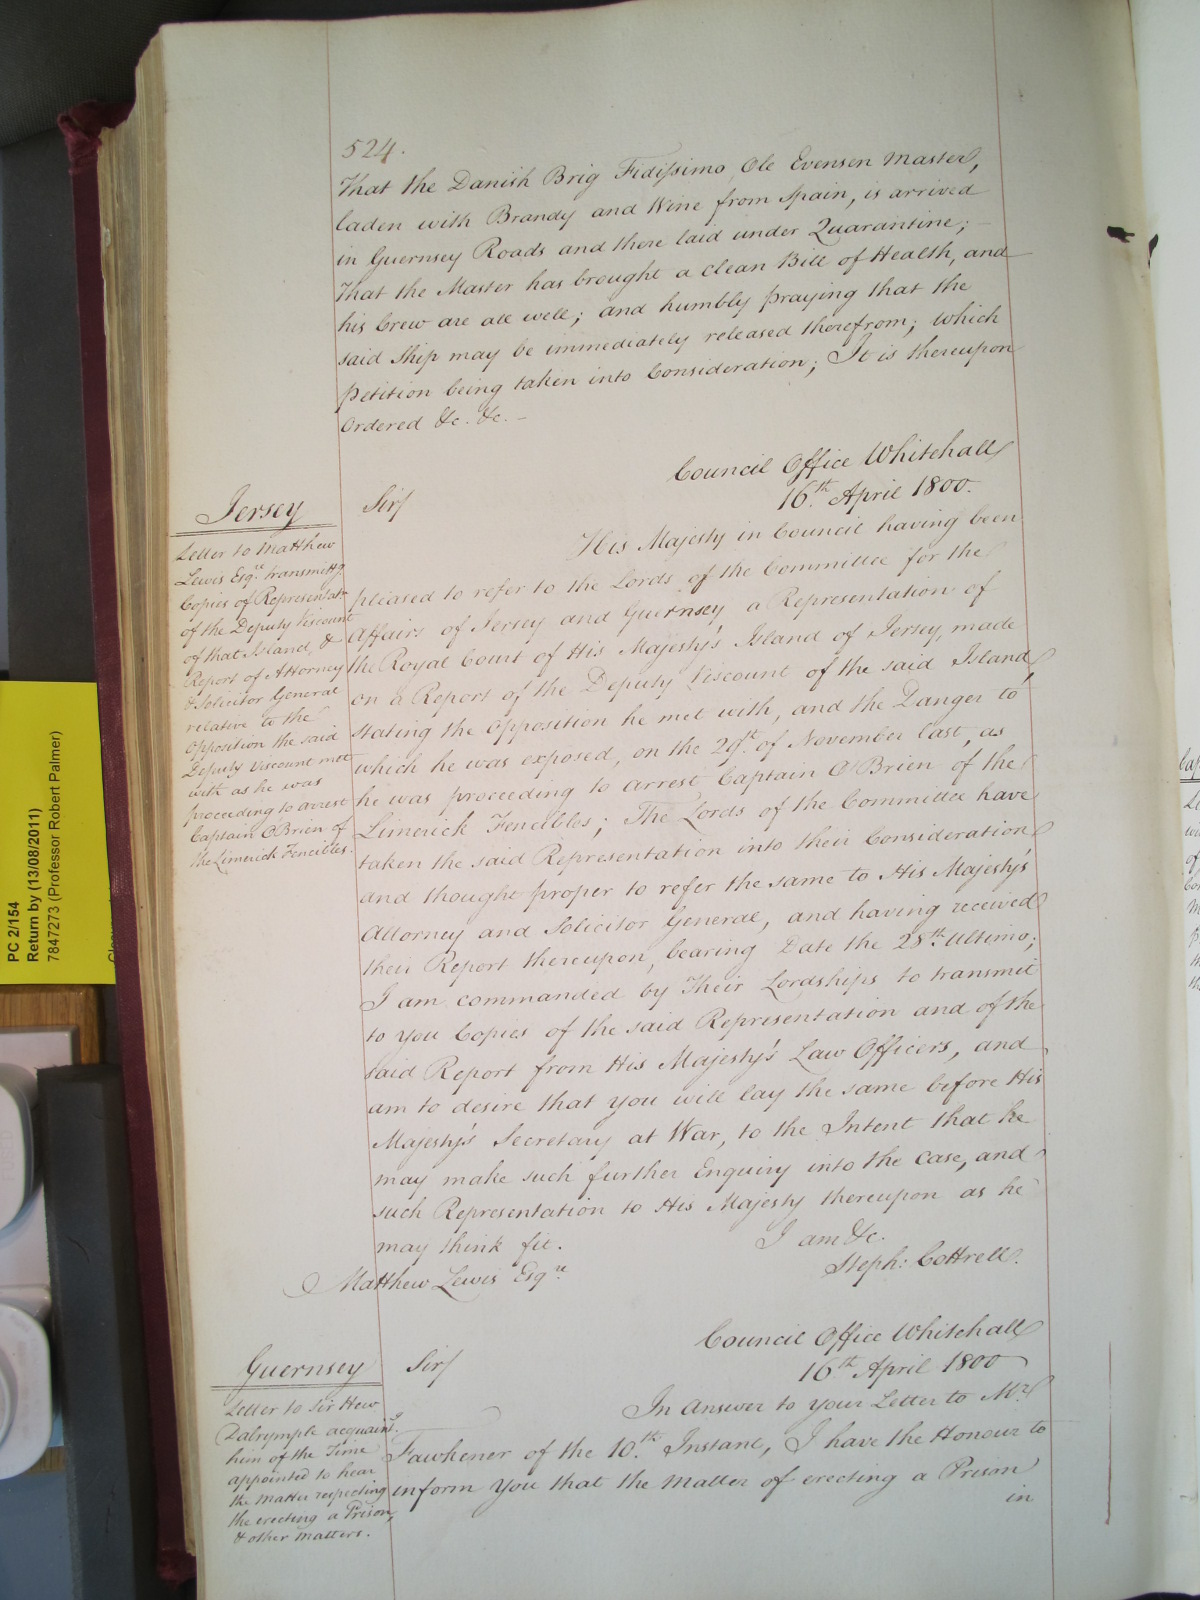 524.
That the Danish Brig Fidissimo, Ole Evensen Master,
laden with Brandy and Wine from Spain, is arrived
in Guernsey Roads and there laid under Quarantine;
That the Master has brought a clean Bill of Health, and
his Crew are all well; and humbly praying that the
said Ship may be immediately released therefrom; which
Petition being taken into Consideration; It is thereupon
Ordered &c. &c. –
Council Office Whitehall
16th April 1800.
Jersey
Letter to Matthew
Lewis Esqre transmittg
Copies of Representatn
of the Deputy Viscount
of that Island, &
Report of Attorney
& Solicitor General
relative to the
Opposition the said
Deputy Viscount met
with as he was
proceeding to arrest
Captain O'Brien of
the Limerick Fencibles.
Sir/
His Majesty in Council having been
pleased to refer to the Lords of the Committee for the
Affairs of Jersey and Guernsey, a Representation of
the Royal Court of His Majesty's Island of Jersey, made
on a Report of the Deputy Viscount of the said Island,
stating the Opposition he met with, and the Danger to
which he was exposed, on the 29th of November last, as
he was proceeding to arrest Captain O'Brien of the
Limerick Fencibles; The Lords of the Committee have
taken the said Representation into their Consideration
and thought proper to refer the same to His Majesty's
Attorney and Solicitor General, and having received
their Report thereupon, bearing Date the 28th Ultimo;
I am commanded by Their Lordships to transmit
to you Copies of the said Representation and of the
said Report from His Majesty's Law Officers, and
am to desire that you will lay the same before His
Majesty's Secretary at War, to the Intent that he
may make such further Enquiry into the Case, and
such Representation to His Majesty thereupon as he
may think fit.
I am &c.
Steph: Cottrell.
Matthew Lewis Esqre
Council Office Whitehall
16th April 1800
Guernsey
Letter to Sir Hew
Dalrymple acquaintg
him of the Time
appointed to hear
the Matter respecting
the erecting a Prison,
& other Matters.
Sir/
In Answer to your Letter to Mr
Fawkener of the 10th Instant, I have the Honour to
inform You that the Matter of erecting a Prison
in
PC 2/154
Return by (13/08/2011)
7847273 (Professor Robert Palmer)